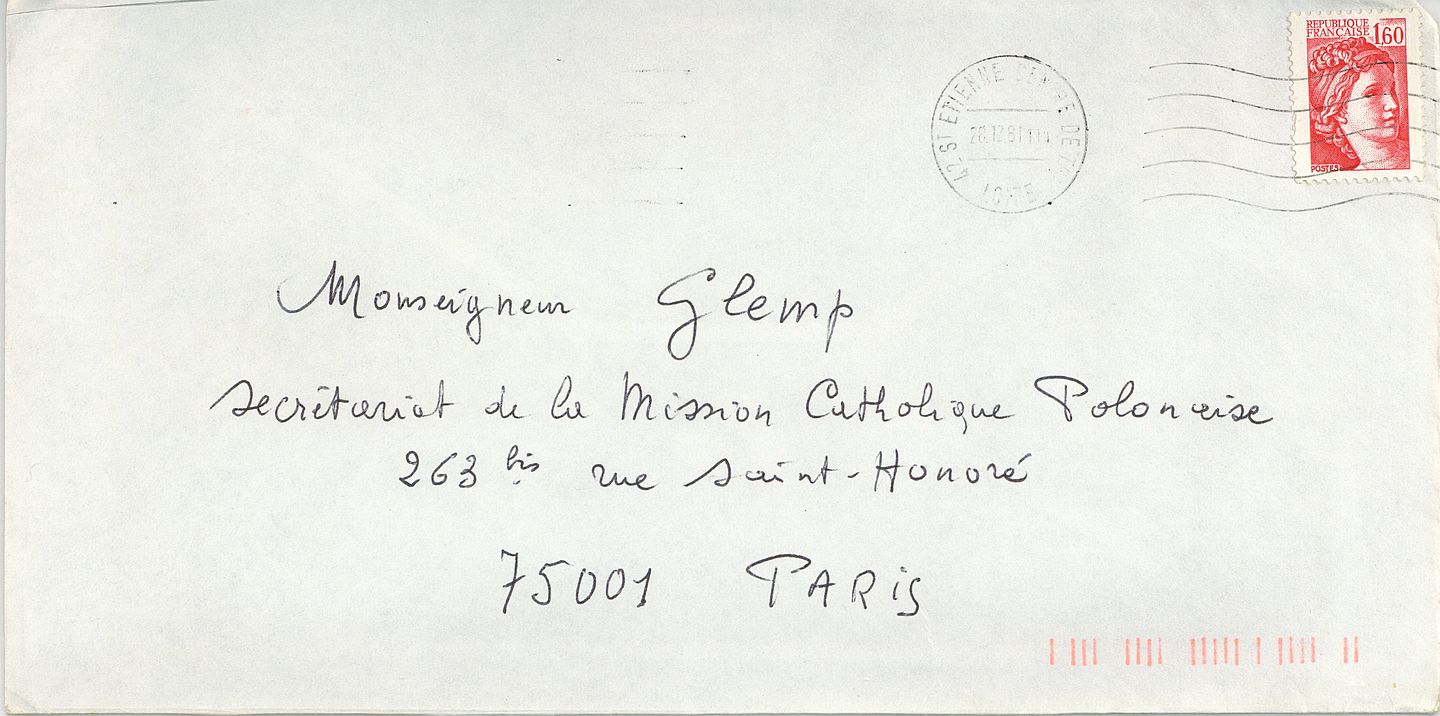 REPUBLIQUE
FRANÇAISE 1,60
POSTES
42 ST ETIENNE
Monseigneur Glemp
Secrétariat de la Mission Catholique Polonaise
263 bis rue Saint-Honoré
75001 PARIS